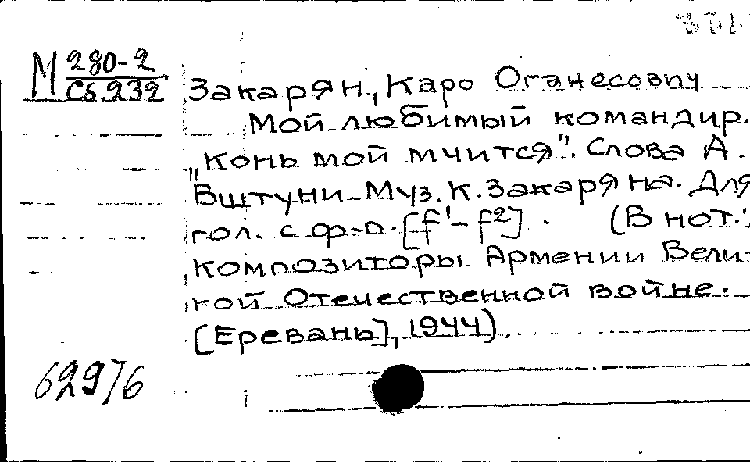 М 280-2
Сб 232
Закарян, Каро Оганесович
Мой любимый командир.
„Конь мой мчится". Слова А.
Вштуни. Муз. К. Закаряна. Для
гол. с ф.-п. [f¹-f²]. (В нот.:
Композиторы Армении Вели-
кой Отечественной войне.
[Ереван], 1944).
62976